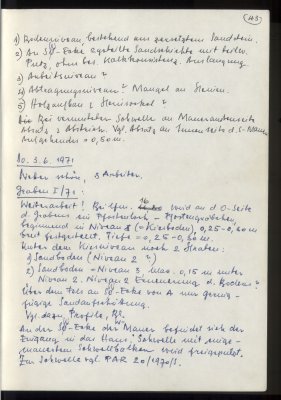 (43)
1) Bodenniveau, bestehend aus zersetztem Sandstein.
2) An SW-Ecke 2geteilte Sandschichte mit teilw.
Putz, ohne bes. Kalkkonsistenz. Auflassung.
3) Arbeitsniveau?
4) Abtragungsniveau? Mangel an Steinen.
5) Holzaufbau, Steinsockel?
Die bei vermuteter Schwelle an Maueraussenseite
Absatz, Abstrich. Vgl. Absatz an Innenseite d. S-Mauer
Aufgehendes = 0,50 m.
Do. 3.6.1971
Wetter schön, 3 Arbeiter.
Graben I/71:
Weiterarbeit! Bei lfm. wird an d. O-Seite
d. Grabens ein Pfostenloch - Pfostengraben,
beginnend in Niveau (= Kiesboden), 0,25-0,40 m
breit festgestellt. Tiefe = 0,25-0,30 m.
Unter dem Kiesniveau noch 2 Straten:
1) Sandboden (Niveau 2?)
2) Sandboden - Niveau 3, max. 0,15 m unter
Niveau 2. Niveau 2 Erneuerung d. Bodens?
Über den Rest an SW-Ecke von A nur gering-
fügige Sandaufschüttung.
Vgl. dazu, Profile,
An der SW-Ecke der Mauer befindet sich der
Zugang in das Haus, Schwelle mit einge-
mauertem Schwellbalken wird freigeputzt.
Zur Schwelle vgl. PAR 20/1970/3.